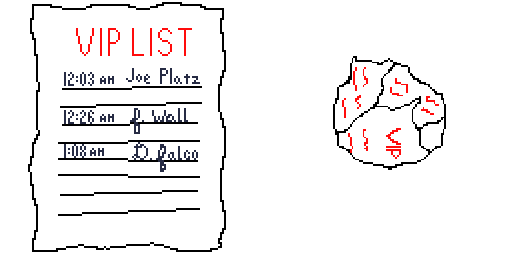 VIP LIST
12:03 AM Joe Platz
12:26 AM J. Wall
1:08 AM D. Falco
VIP